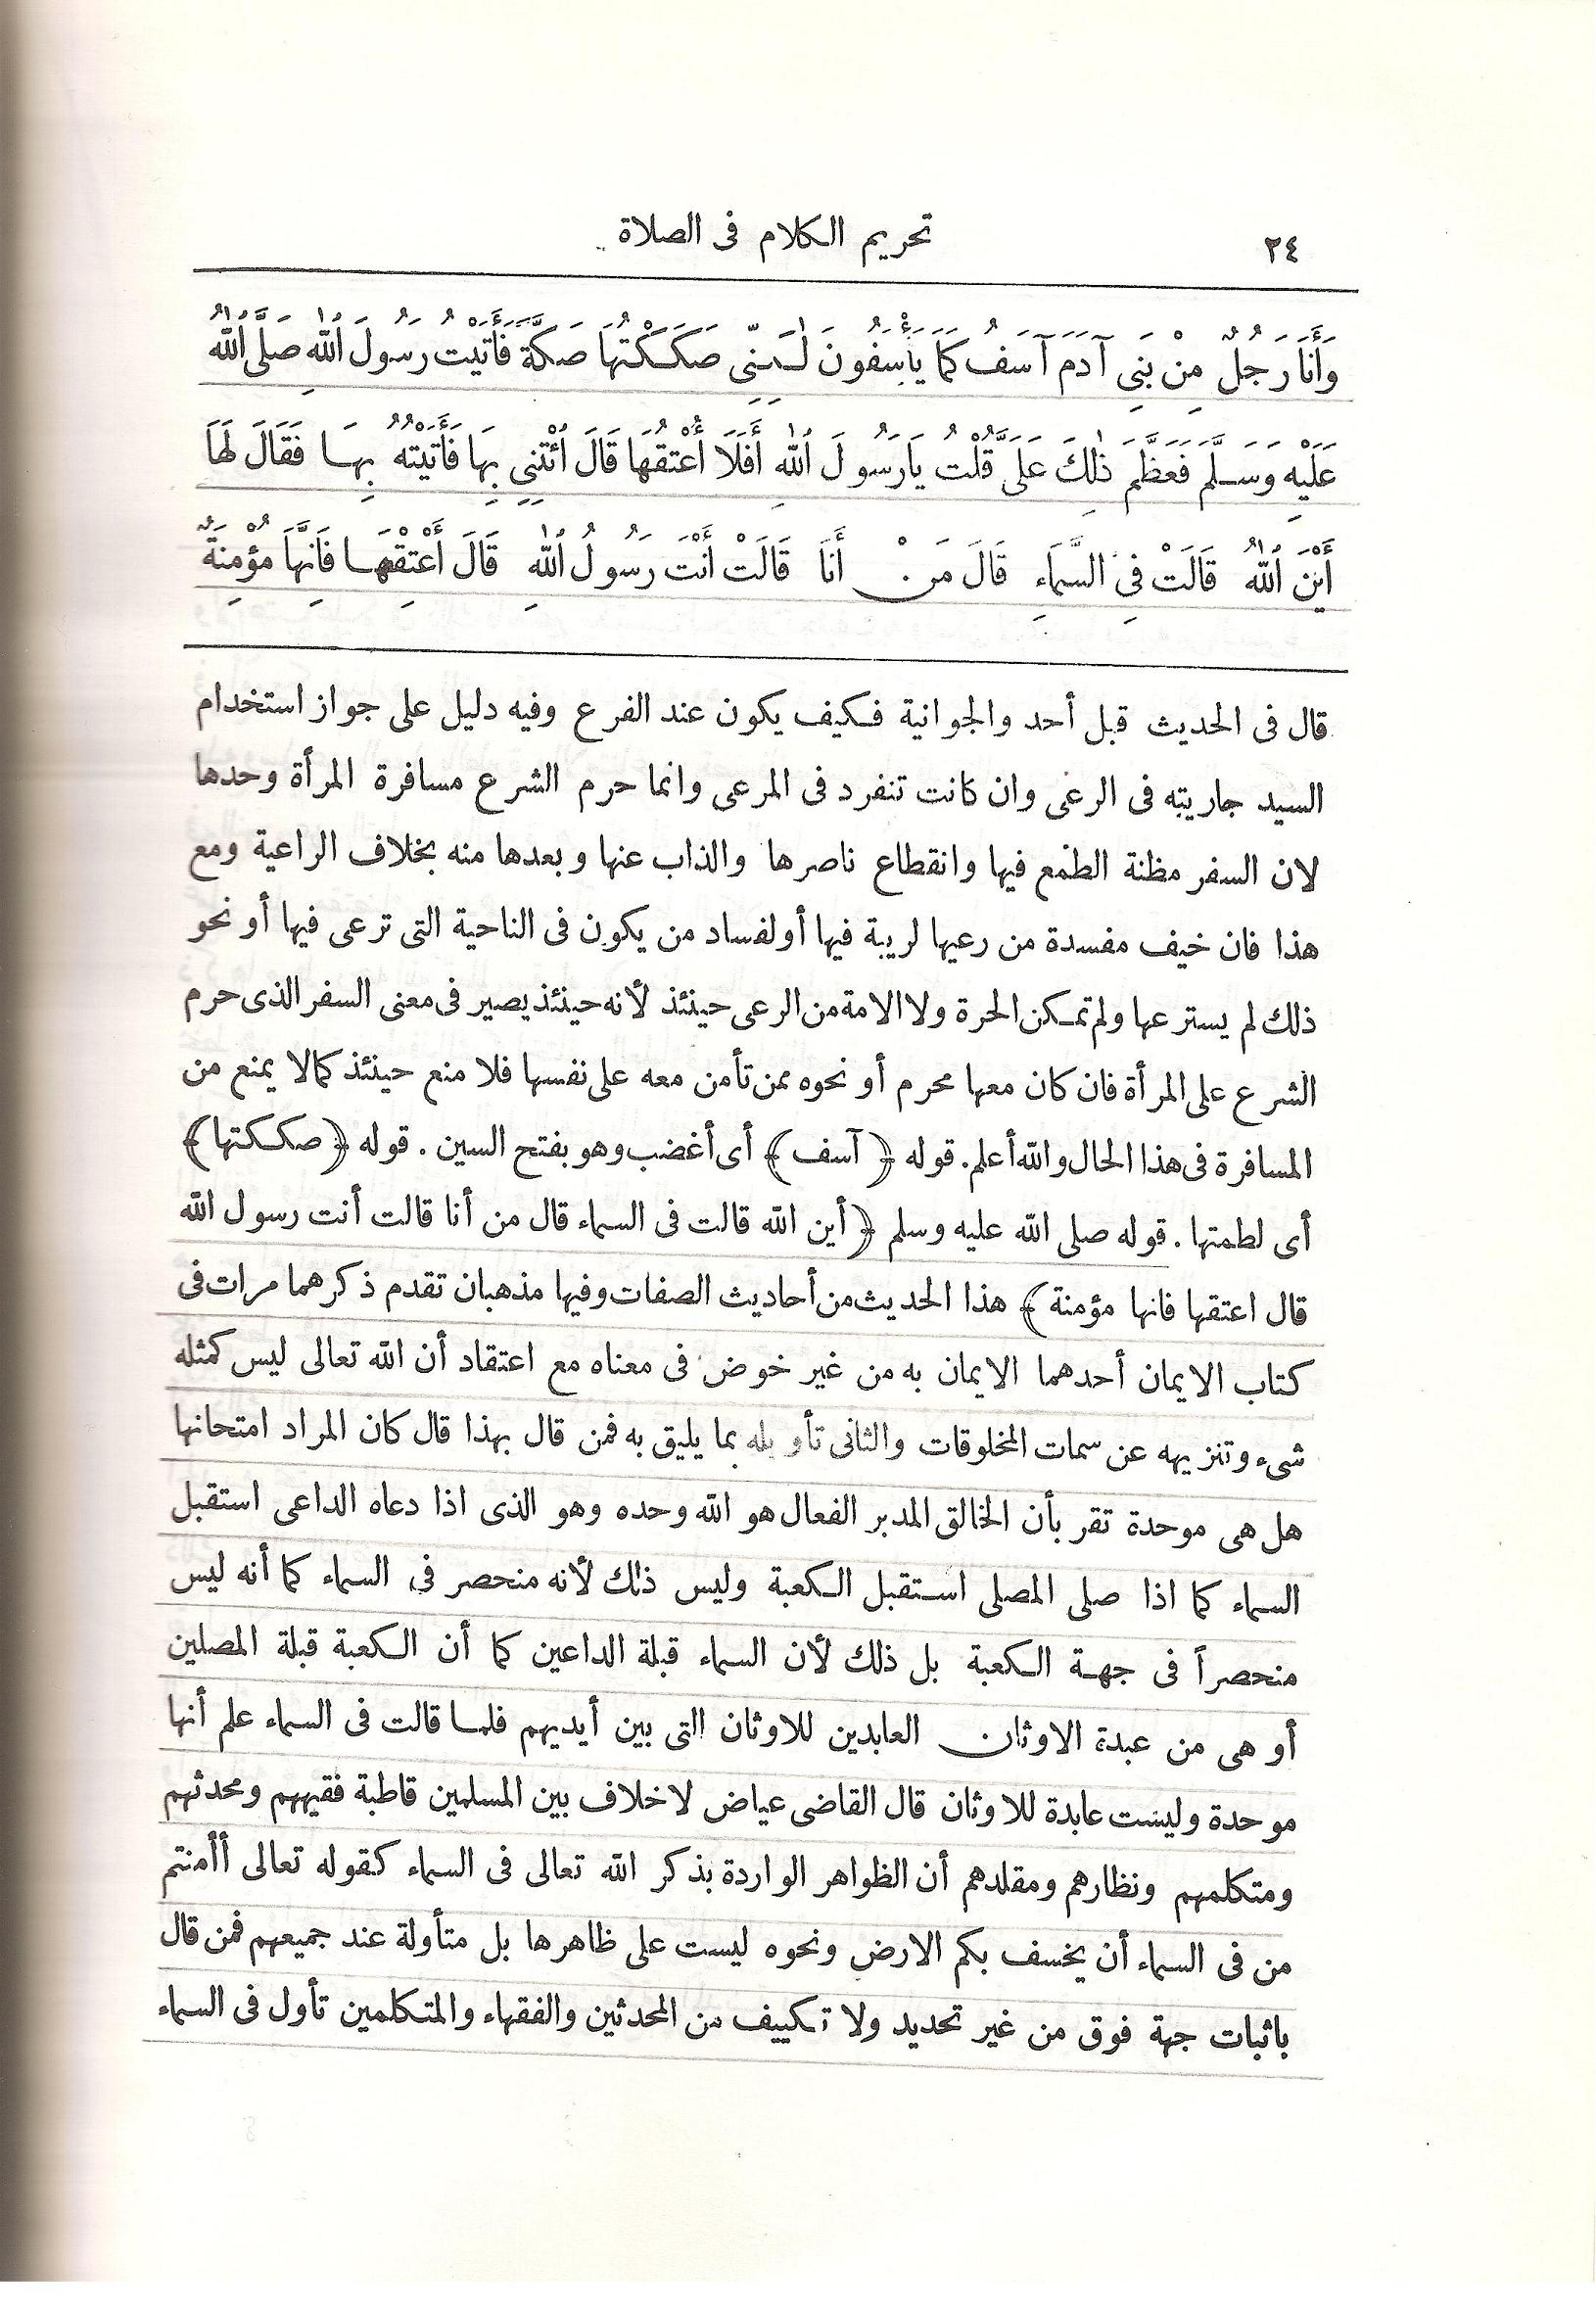 ٢٤
تحريم الكلام فى الصلاة
وَأَنَا رَجُلٌ مِنْ بَنِى آدَمَ آسَفُ كَمَا يَأْسَفُونَ لَكِنِّى صَكَكْتُهَا صَكَّةً فَأَتَيْتُ رَسُولَ اللّٰهِ صَلَّى اللّٰهُ
عَلَيْهِ وَسَلَّمَ فَعَظَّمَ ذٰلِكَ عَلَىَّ قُلْتُ يَارَسُولَ اللّٰهِ أَفَلَا أُعْتِقُهَا قَالَ ائْتِنِى بِهَا فَأَتَيْتُهُ بِهَا فَقَالَ لَهَا
أَيْنَ اللّٰهُ قَالَتْ فِى السَّمَاءِ قَالَ مَنْ أَنَا قَالَتْ أَنْتَ رَسُولُ اللّٰهِ قَالَ أَعْتِقْهَا فَانَّهَا مُؤْمِنَةٌ
قال فى الحديث قبل أحد والجوانية فكيف يكون عند الفرع وفيه دليل على جواز استخدام
السيد جاريته فى الرعى وان كانت تنفرد فى المرعى وانما حرم الشرع مسافرة المرأة وحدها
لان السفر مظنة الطمع فيها وانقطاع ناصرها والذاب عنها وبعدها منه بخلاف الراعية ومع
هذا فان خيف مفسدة من رعيها لريبة فيها أو لفساد من يكون فى الناحية التى ترعى فيها أو نحو
ذلك لم يسترعها ولم تمكن الحرة ولا الامة من الرعى حينئذ لأنه حينئذ يصير فى معنى السفر الذى حرم
الشرع على المرأة فان كان معها محرم أو نحوه ممن تأمن معه على نفسها فلا منع حينئذ كما لا يمنع من
المسافرة فى هذا الحال والله أعلم. قوله ﴿آسف﴾ أى أغضب وهو بفتح السين . قوله ﴿صككتها﴾
أى لطمتها . قوله صلى الله عليه وسلم ﴿أين الله قالت فى السماء قال من أنا قالت أنت رسول الله
قال اعتقها فانها مؤمنة﴾ هذا الحديث من أحاديث الصفات وفيها مذهبان تقدم ذكرهما مرات فى
كتاب الايمان أحدهما الايمان به من غير خوض فى معناه مع اعتقاد أن الله تعالى ليس كمثله
شىء وتنزيهه عن سمات المخلوقات والثانى تأويله بما يليق به فمن قال بهذا قال كان المراد امتحانها
هل هى موحدة تقر بأن الخالق المدبر الفعال هو الله وحده وهو الذى اذا دعاه الداعى استقبل
السماء كما اذا صلى المصلى استقبل الكعبة وليس ذلك لأنه منحصر فى السماء كما أنه ليس
منحصراً فى جهة الكعبة بل ذلك لأن السماء قبلة الداعين كما أن الكعبة قبلة المصلين
أو هى من عبدة الاوثان العابدين للاوثان التى بين أيديهم فلما قالت فى السماء علم أنها
موحدة وليست عابدة للاوثان قال القاضى عياض لا خلاف بين المسلمين قاطبة فقيههم ومحدثهم
ومتكلمهم ونظارهم ومقلدهم أن الظواهر الواردة بذكر الله تعالى فى السماء كقوله تعالى أأمنتم
من فى السماء أن يخسف بكم الارض ونحوه ليست على ظاهرها بل متأولة عند جميعهم فمن قال
باثبات جهة فوق من غير تحديد ولا تكييف من المحدثين والفقهاء والمتكلمين تأول فى السماء